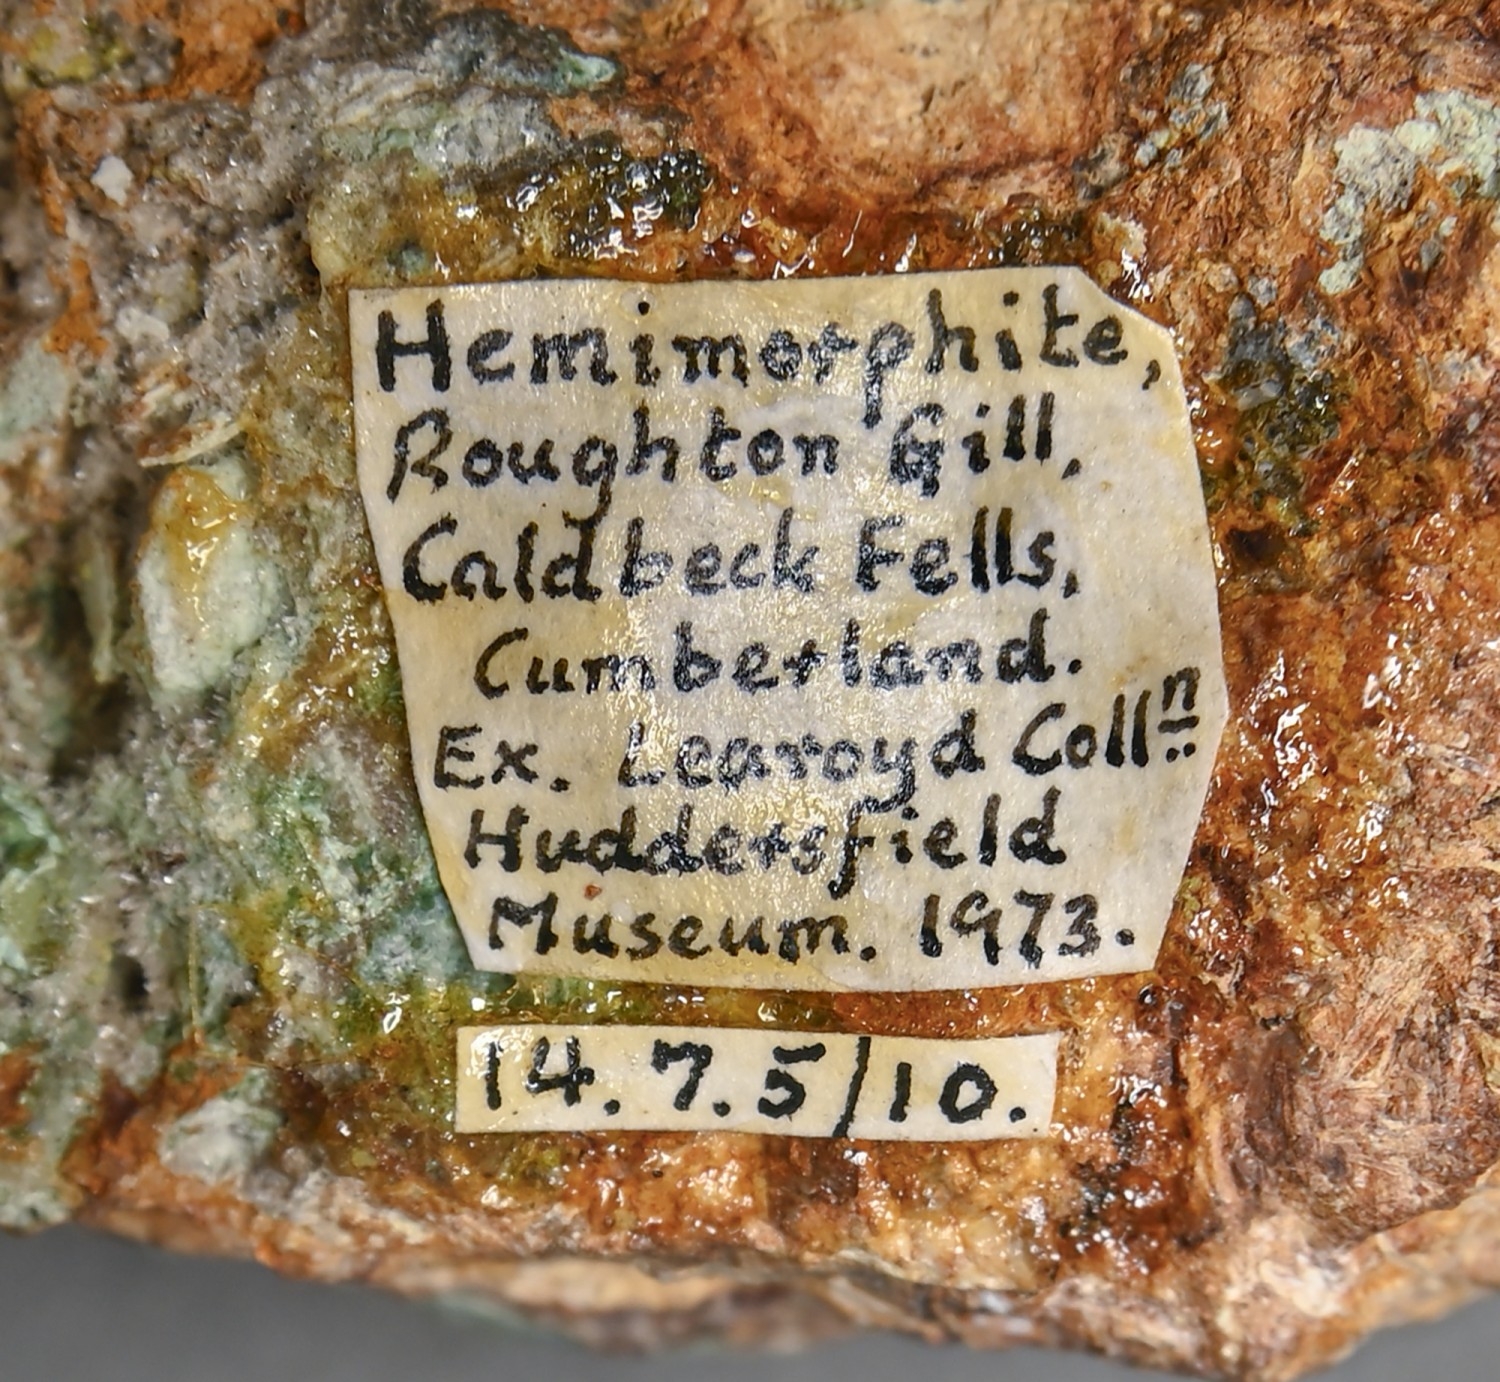 Hemimorphite,
Roughton Gill,
Caldbeck Fells,
Cumberland.
Ex. Learoyd Collⁿ
Huddersfield
Museum. 1973.
14.7.5/10.